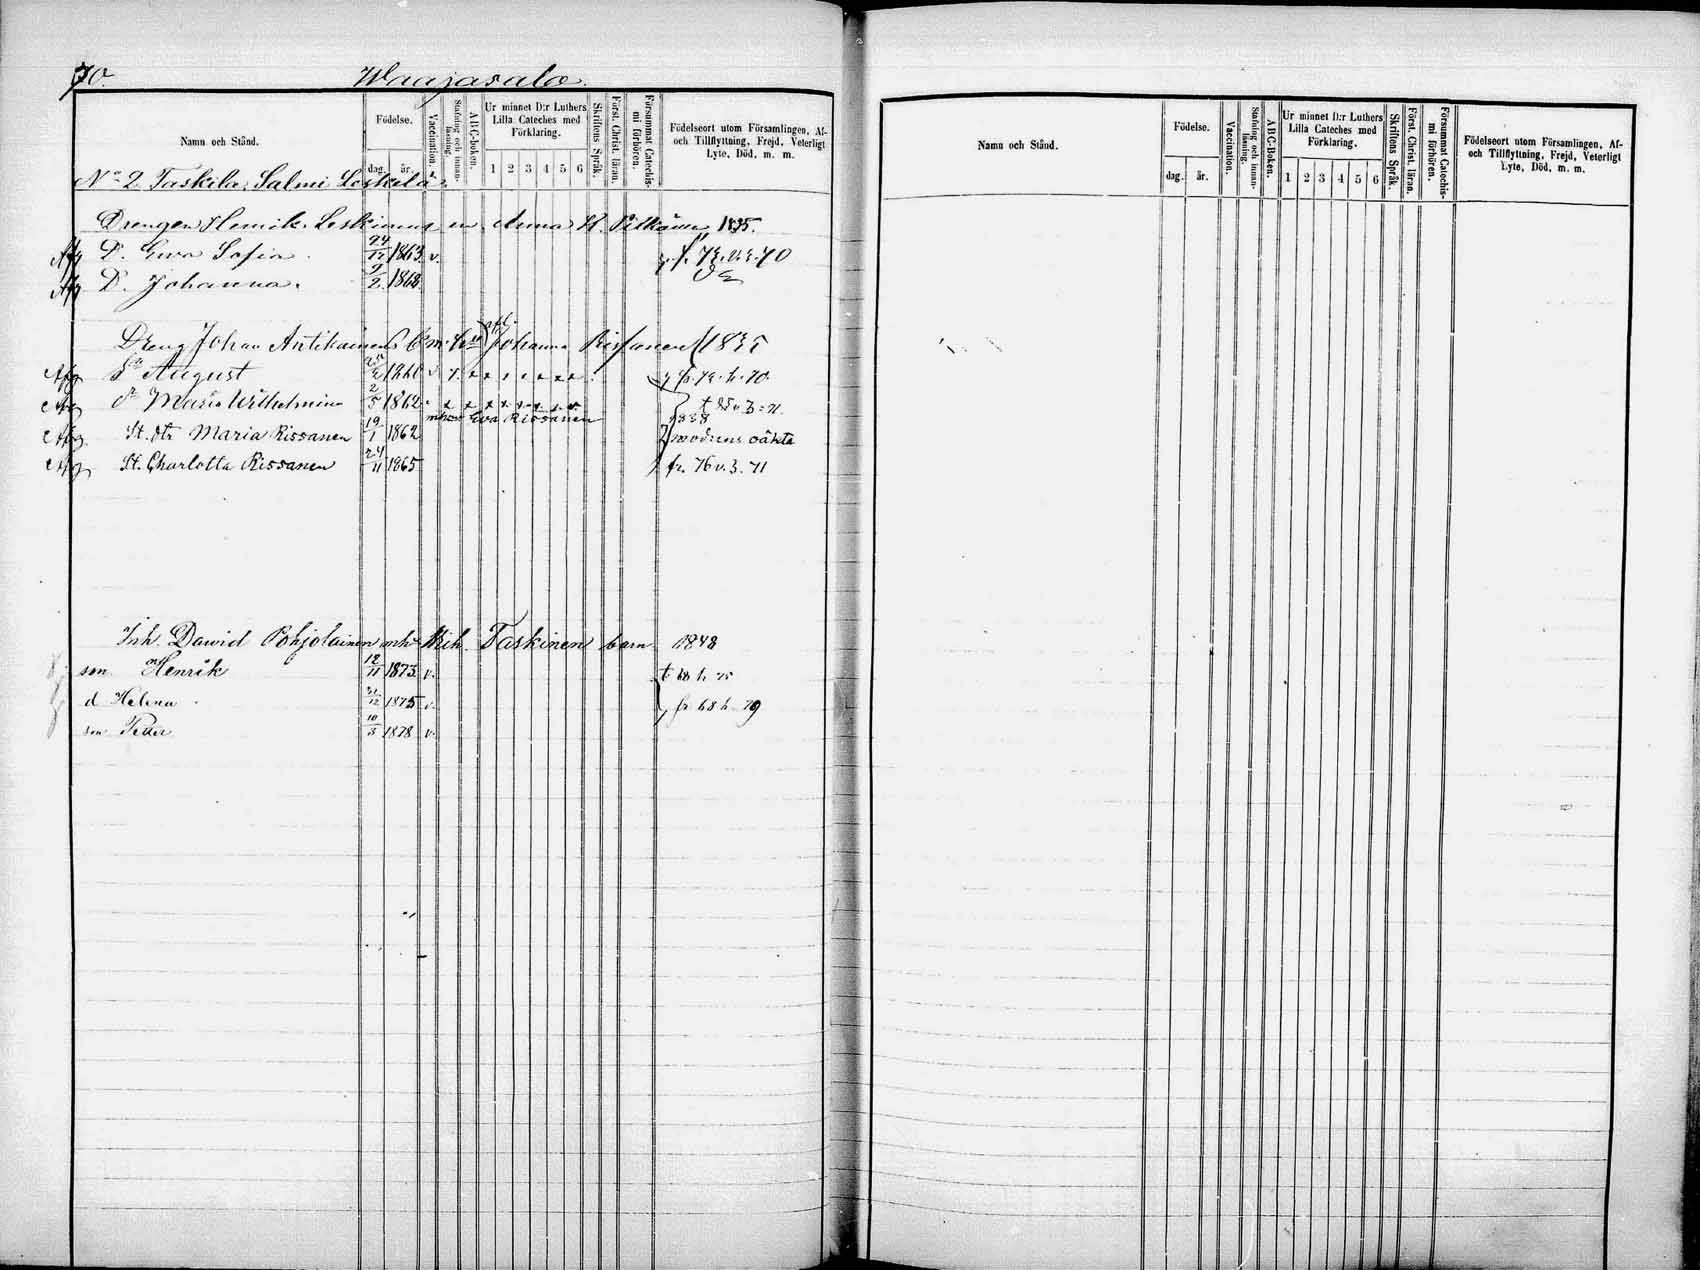 70.
Waajasalo.
Namn och Stånd.
Födelse.
dag. år.
Vaccination.
Stafning och innanläsning.
A B C-boken.
Ur minnet D:r Luthers Lilla Cateches med Förklaring.
1 2 3 4 5 6
Skriftens Språk.
Först. Christ. läran.
Försummat Catechismi förhören.
Födelseort utom Församlingen, Af- och Tillflyttning, Frejd, Veterligt Lyte, Död, m. m.
No 2 Taskila, Salmi Leskelä
Drengen Henrik Leskinens en Anna K. Pitkänen 1835.
Afg D. Ewa Sofia 24/12 1863 v.
Afg D. Johanna. 9/2 1868
Dreng Johan Antikainens Johanna Rissanen 1835
Afg Sn August 1860
Afg dr Maria Wilhelmina 2/5 1862
Eva Rissanen 1838
Afg St. dtr Maria Rissanen 19/1 1862 modrens oäkta
Afg St. Charlotta Rissanen 24/11 1865 fr. 76 v. 3. 71
Inh. Dawid Pohjolainen Mich. Taskinen barn 1848
son Henrik 12/11 1873 v. t 68 h 75
d Helena 1875 v. fr 68 h 79
son Petter 10/3 1878 v.
Namn och Stånd.
Födelse.
dag. år.
Vaccination.
Stafning och innanläsning.
A B C-Boken.
Ur minnet D:r Luthers Lilla Cateches med Förklaring.
1 2 3 4 5 6
Skriftens Språk.
Först. Christ. läran.
Försummat Catechismi förhören.
Födelseort utom Församlingen, Af- och Tillflyttning, Frejd, Veterligt Lyte, Död, m. m.